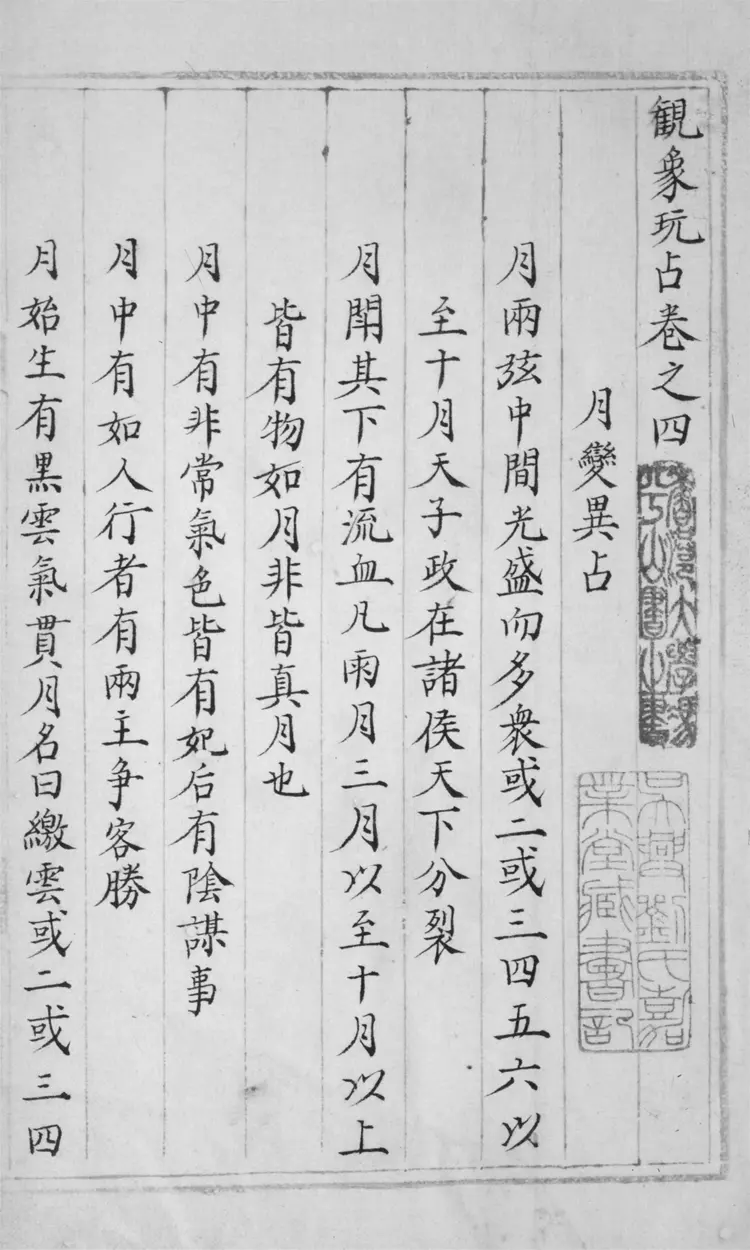 觀象玩占卷之四
月變異占
月兩弦中間光盛而多衆或二或三四五六以
至十月天子政在諸侯天下分裂
月鬪其下有流血凡兩月三月以至十月以上
皆有物如月非皆真月也
月中有非常氣色皆有妃后有陰謀事
月中有如人行者有兩主争客勝
月始生有黒雲氣貫月名曰繳雲或二或三四
吳興劉氏嘉
業堂藏書記